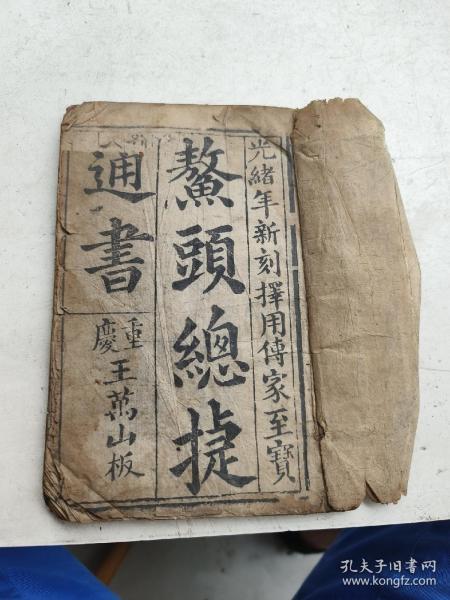 光緒年新刻擇用傳家至寶
鰲頭總捷
通書
重慶
王萬山板
孔夫子旧书网
www.kongfz.com